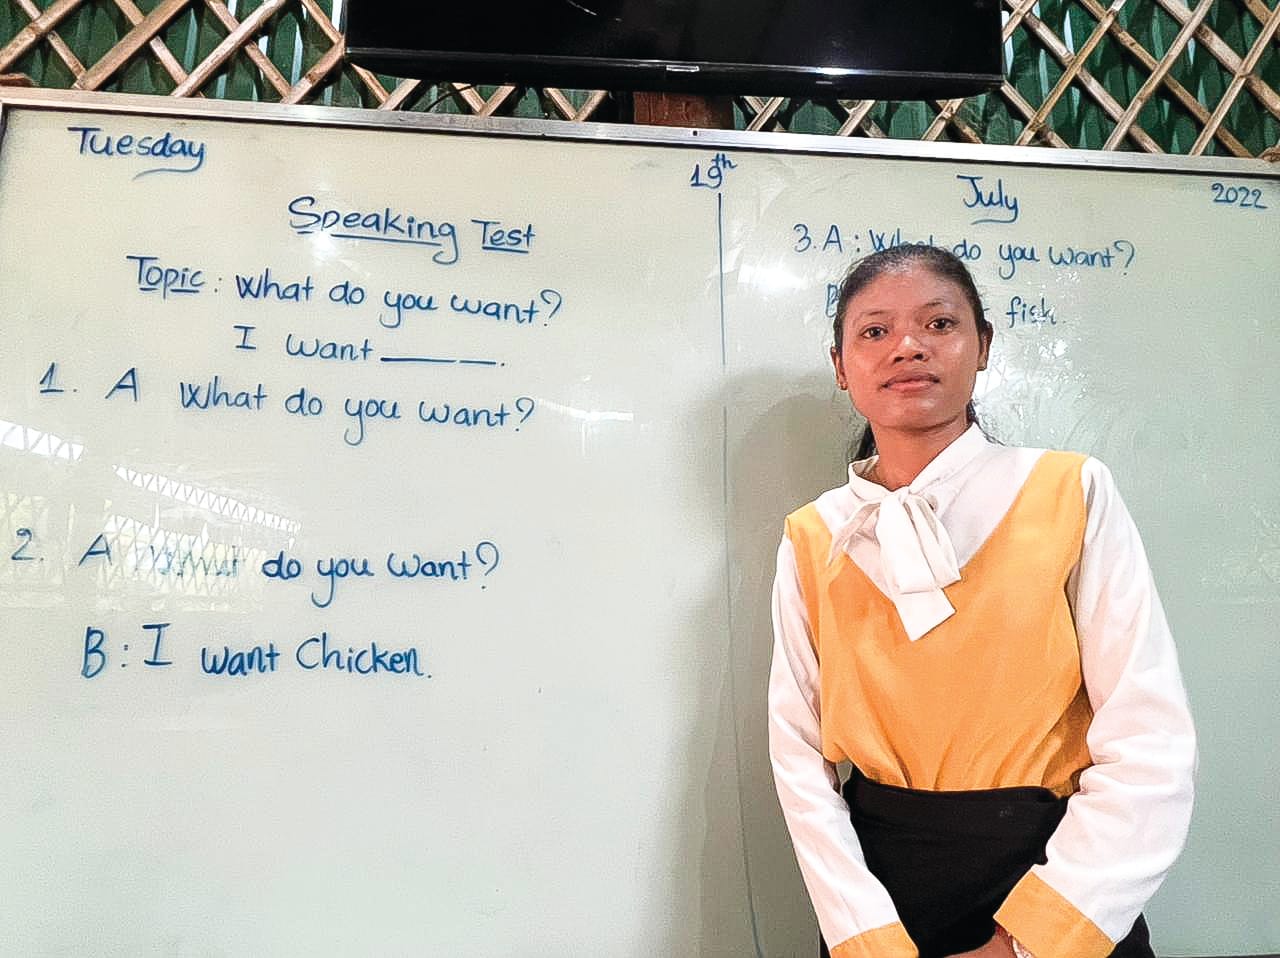 Tuesday 19th July 2022
Speaking Test
Topic: What do you want?
I want ______.
1. A What do you want?
2. A What do you want?
B: I want Chicken.
3. A: What do you want?
B fish.